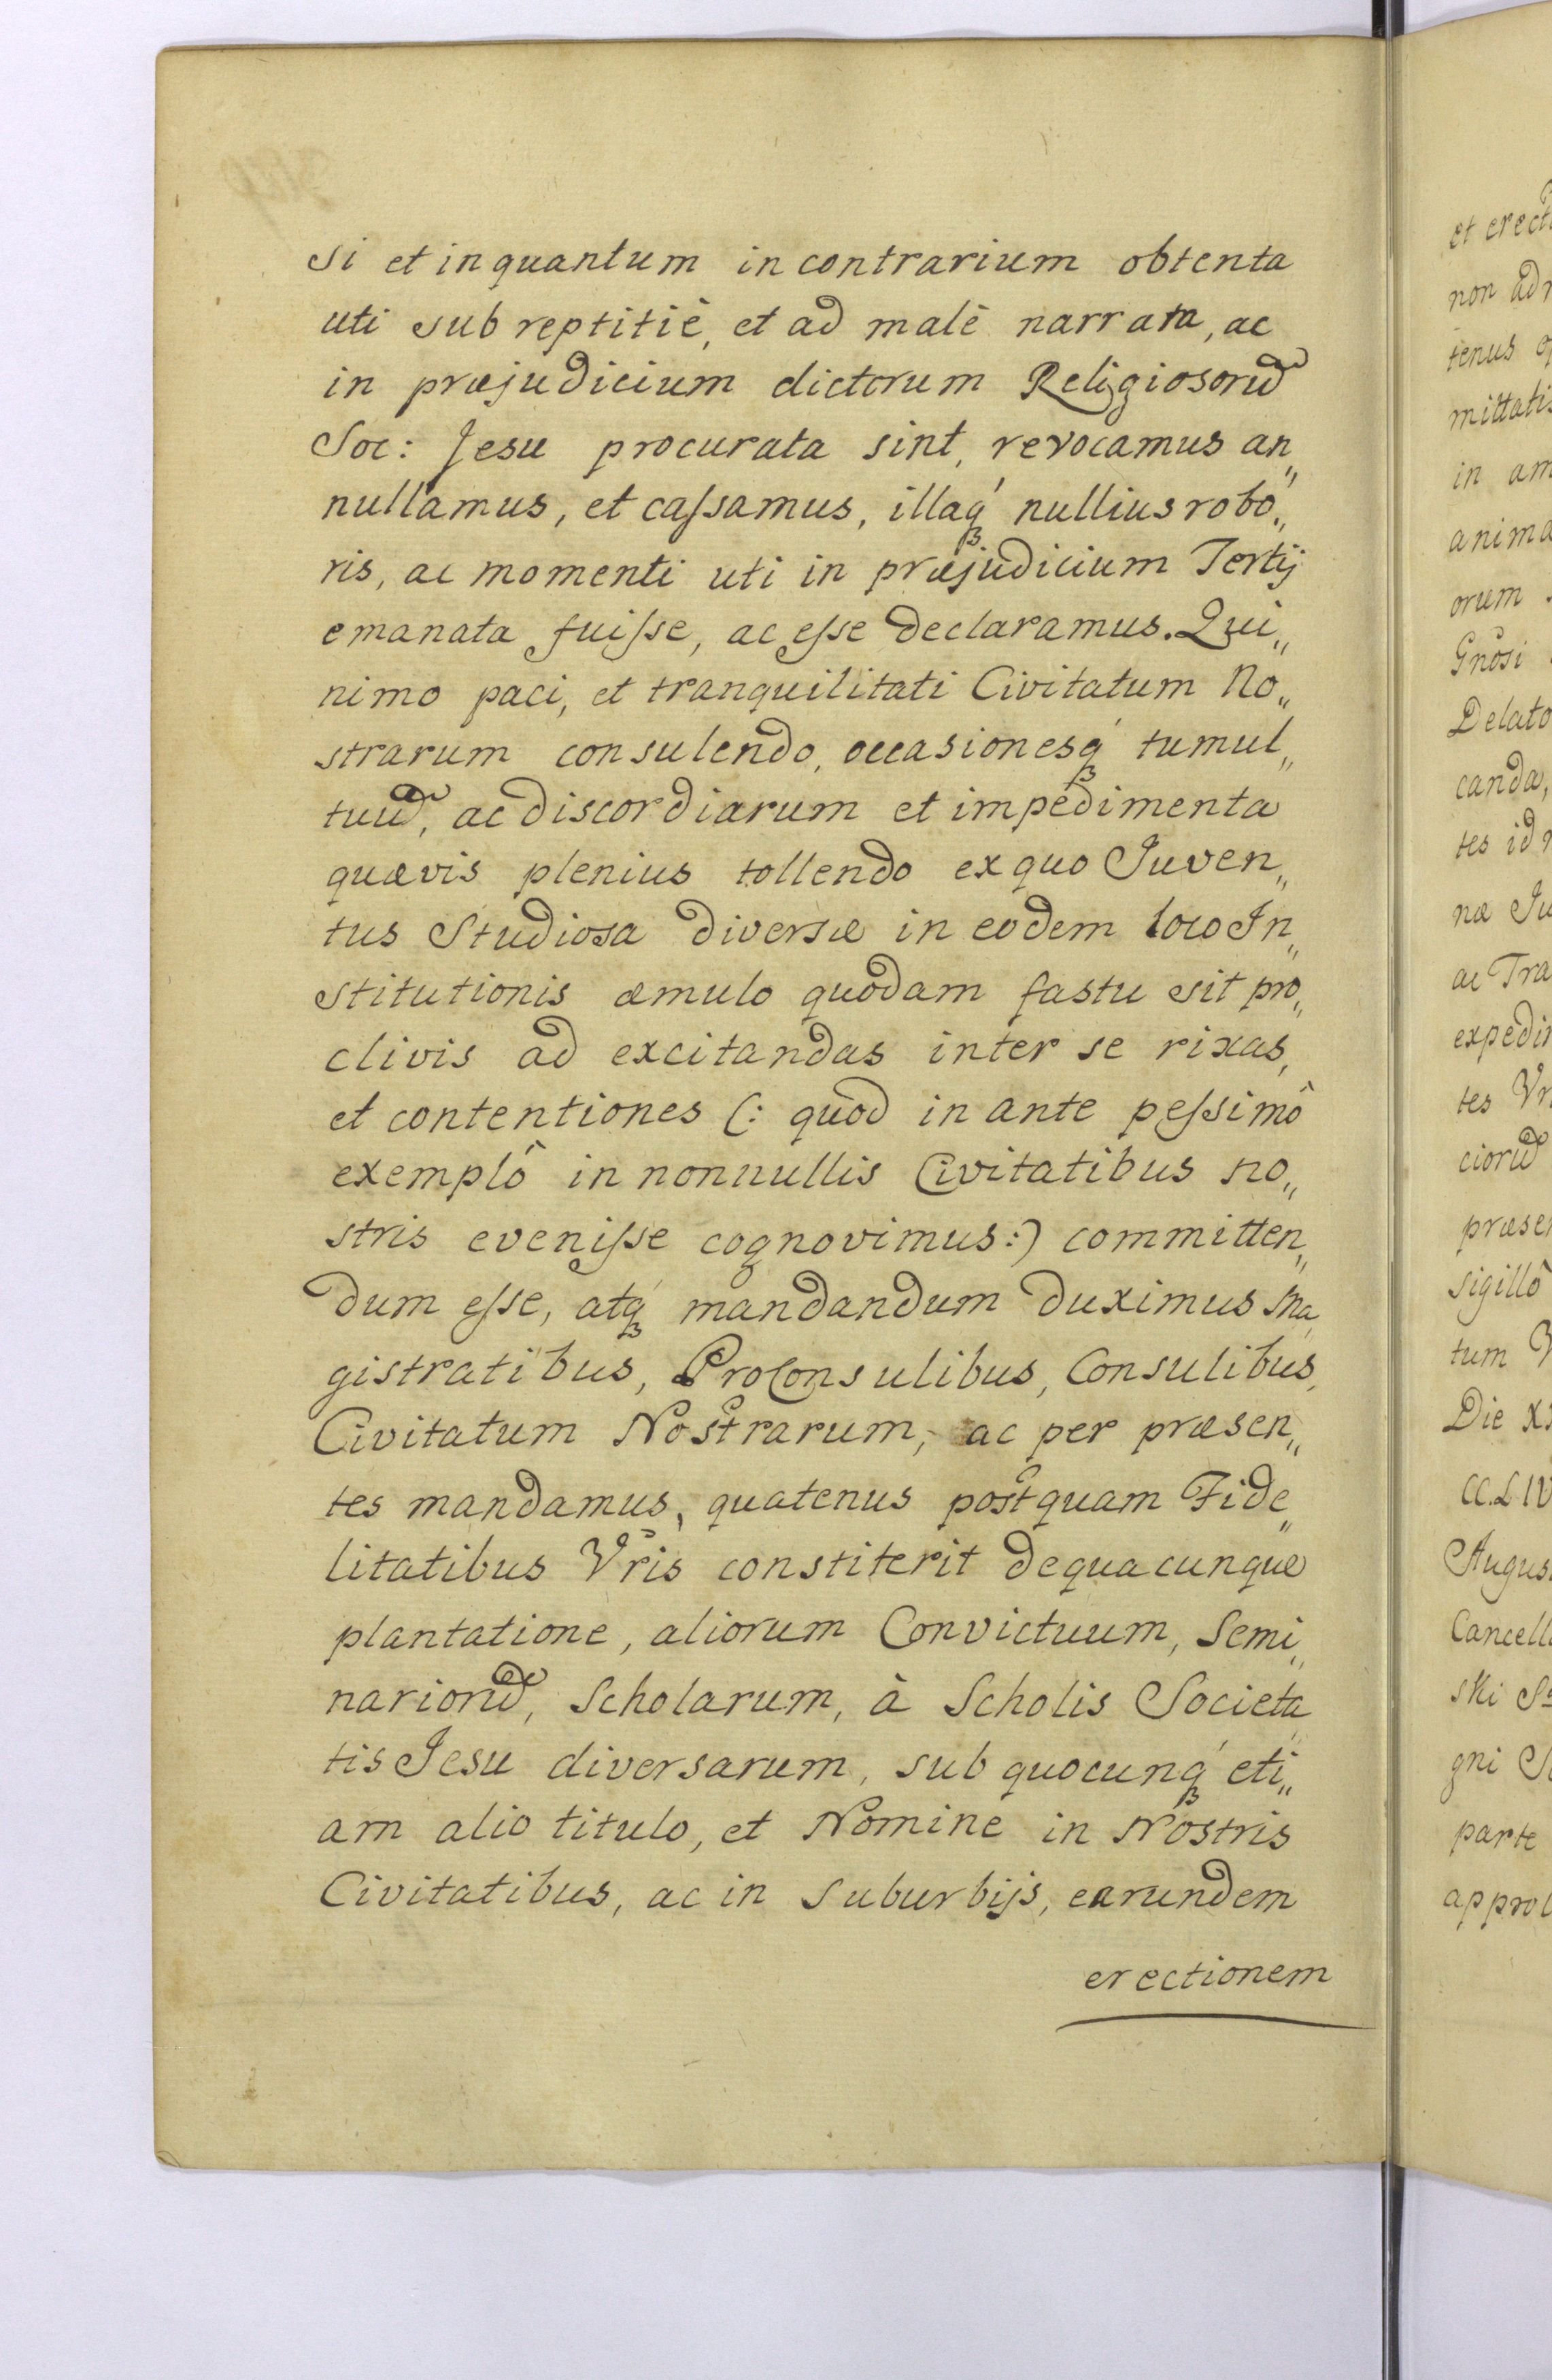 si et inquantum in contrarium obtenta
uti subreptitiè, et ad malè narrata, ac
in præjudicium dictorum Religiosorũ
Soc: Jesu procurata sint, revocamus an„
nullamus, et caſsamus, illaq́ nullius robo„
ris, ac momenti uti in præjudicium Tertij
emanata fuiſse, ac eſse declaramus. Qui„
nimo paci, et tranquilitati Civitatum No„
strarum consulendo, occasionesq́ tumul„
tuũ, ac discordiarum et impedimenta
quævis plenius tollendo ex quo Juven„
tus Studiosa diversæ in eodem loco In„
stitutionis æmulo quodam fastu sit pro„
clivis ad excitandas inter se rixas,
et contentiones (: quod in ante peſsimô
exemplô in nonnullis Civitatibus no„
stris eveniſse cognovimus:) committen„
dum eſse, atq́ mandandum duximus Ma„
gistratibus, ProConsulibus, Consulibus,
Civitatum Nostrarum, ac per præsen„
tes mandamus, quatenus postquam Fide„
litatibus Vr̃is constiterit de quacunque
plantatione, aliorum Convictuum, Semi„
nariorũ, Scholarum, à Scholis Societa„
tis Jesu diversarum, sub quocunq́ eti„
am alio titulo, et Nomine in Nostris
Civitatibus, ac in Suburbijs, earundem
erectionem
et erect
non ad
tenus
mittatis
in am
anima
orum
Gnõsi
Delato
canda,
tes id
næ Ju
ac Tra
expedi
tes Vr
ciorũ
præse
sigillô
tum
Die X
CC.LIV
Augus
Cancell
ski S
gni S
parte
appro